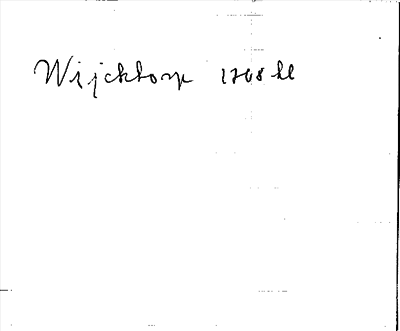 Wijcktorp 1768 kl